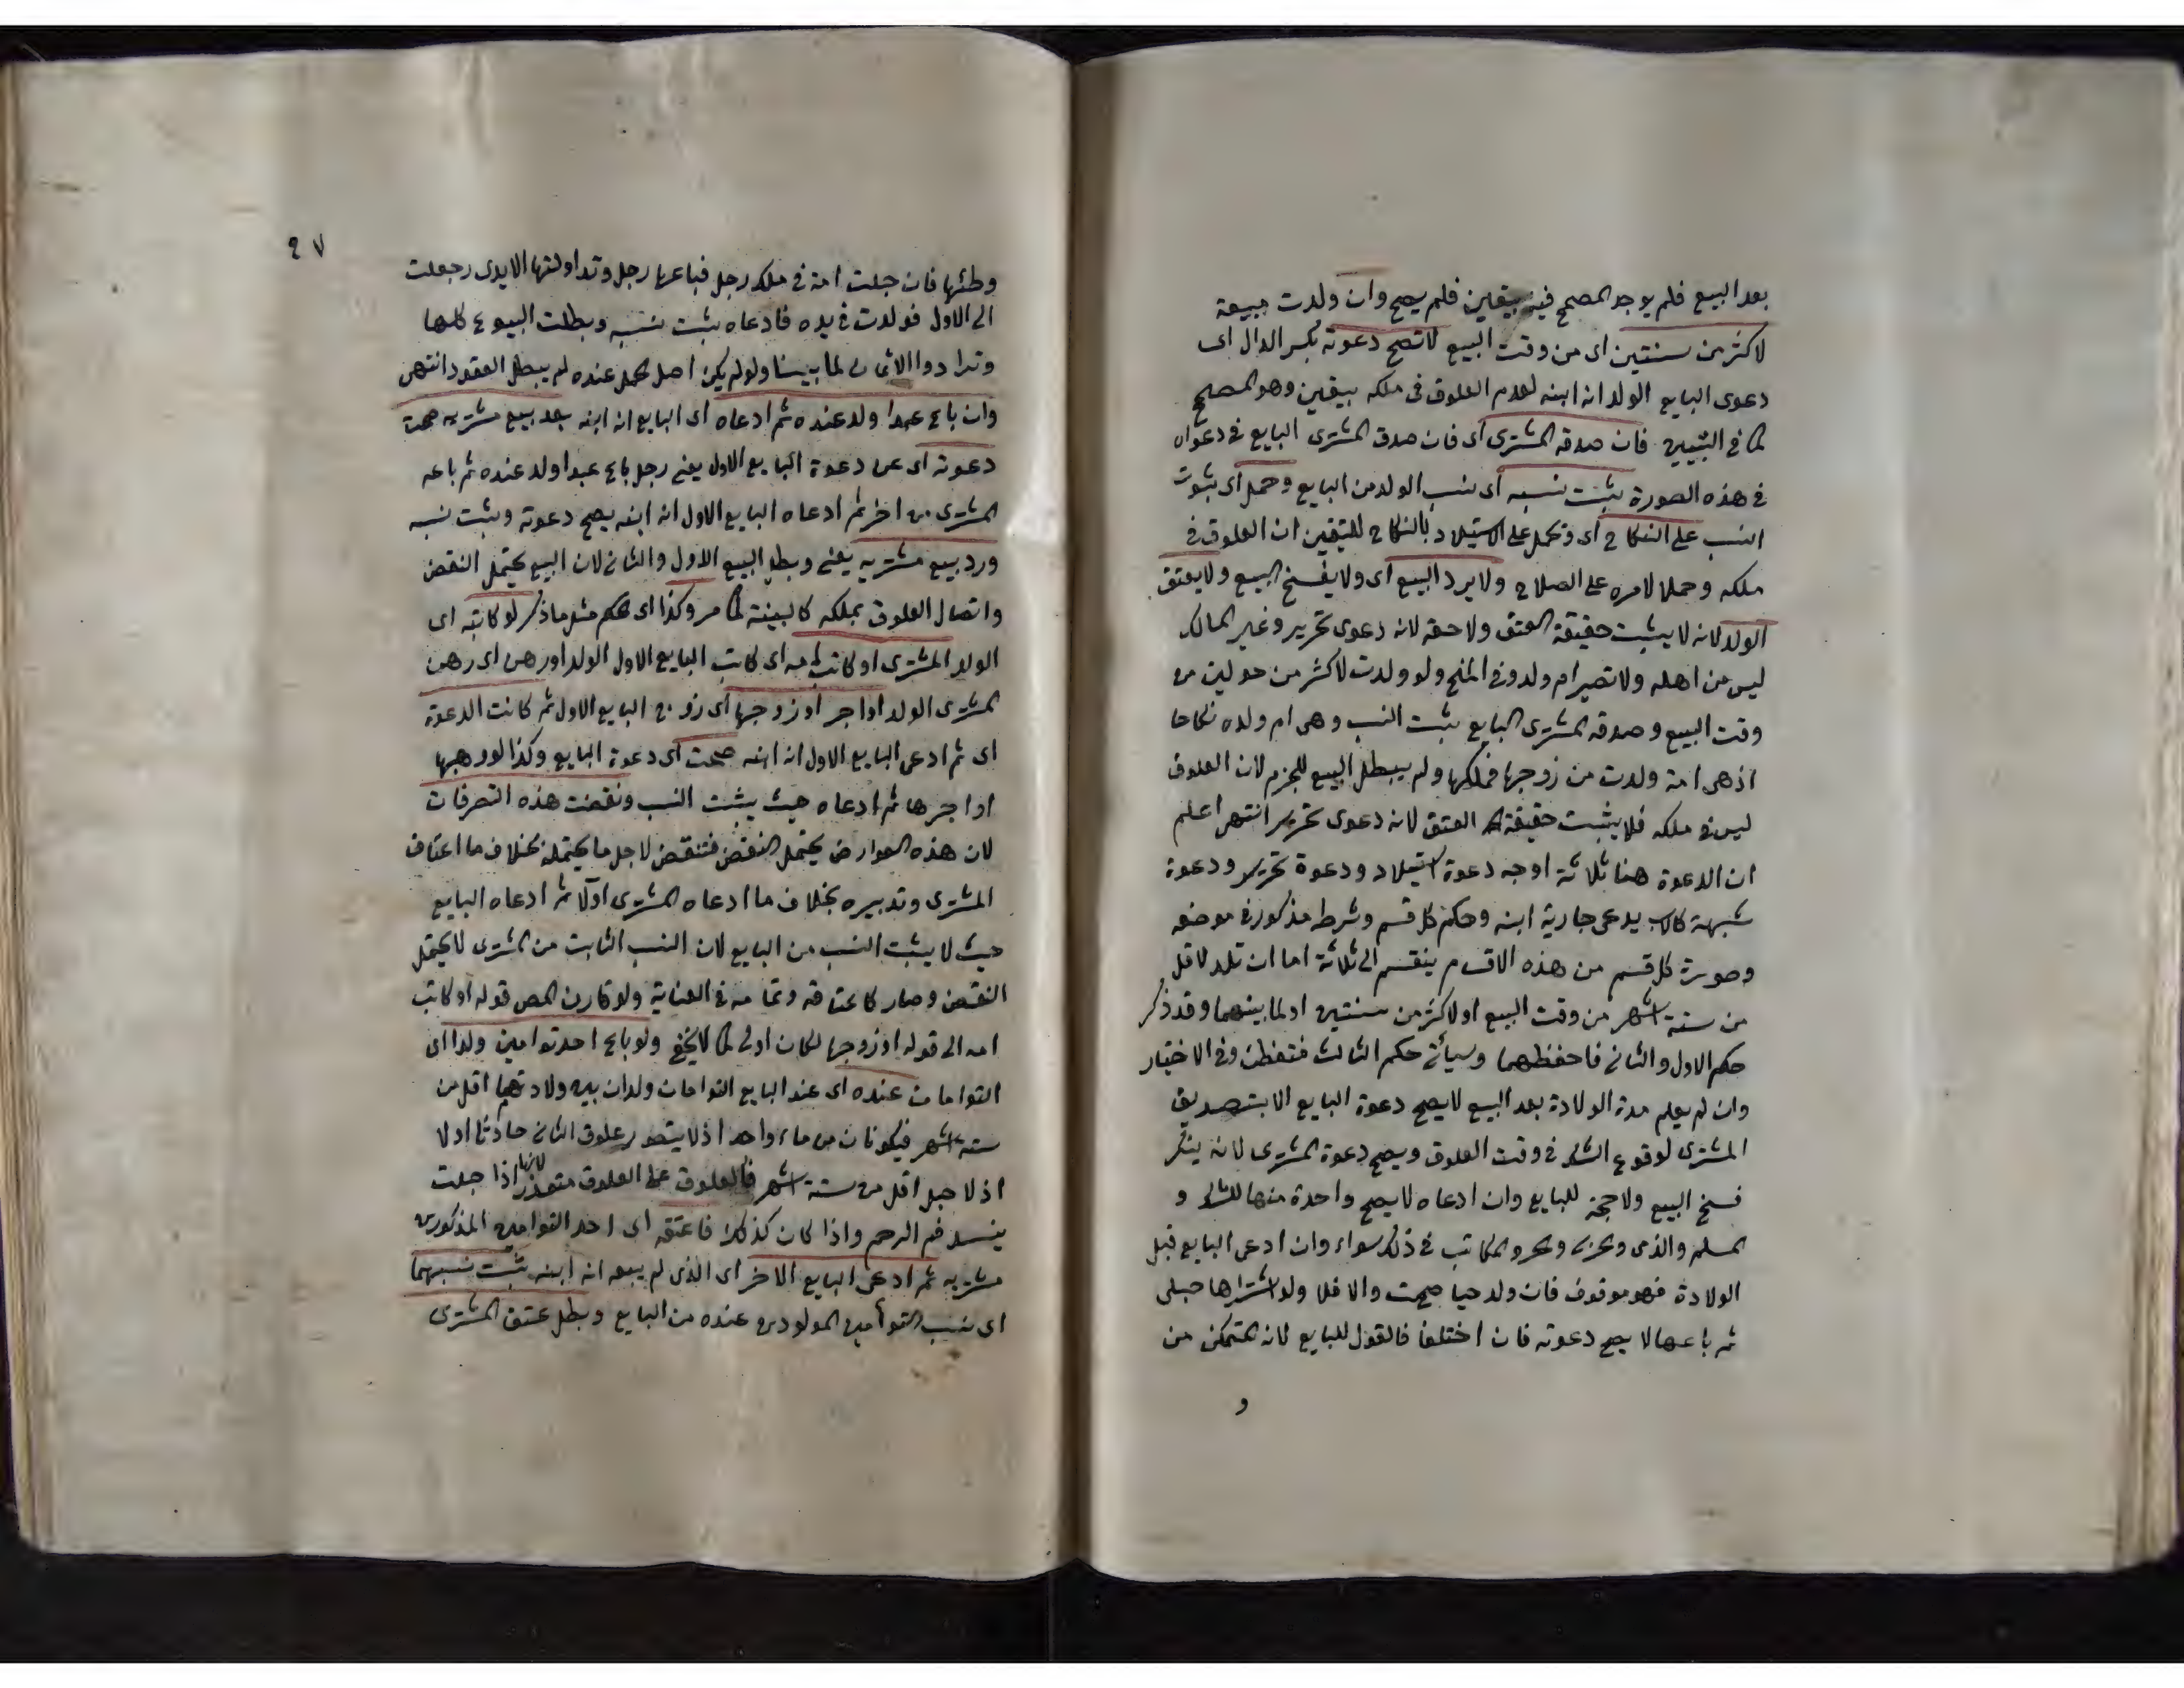 بعد البيع فلم يوجد المصحح فيه بيقين فلم يصح وان ولدت مبيعة
لاكثر من سنتين اى من وقت البيع لا تصح دعوته بكسر الدال اى
دعوى البايع الولد انه ابنه لعدم العلوق فى ملكه بيقين وهو المصحح
كما فى التبيين فان صدقه المشترى اى فان صدق المشترى البايع فى دعواه
فى هذه الصورة يثبت نسبه اى نسب الولد من البايع وحمل اى ثبوت
النسب على النكاح اى وتحمل على الاستيلاد بالنكاح لليتقين ان العلوق فى
ملكه وحملا لامره على الصلاح ولا يرد البيع اى ولا يفسخ البيع ولا يعتق
الولد لانه لا يثبت حقيقة العتق ولا حقه لانه دعوى تحرير وغير المالك
ليس من اهله ولا تصير ام ولد وفى المنح ولو ولدت لاكثر من حولين من
وقت البيع وصدقه المشترى البايع يثبت النسب وهى ام ولده نكاحا
اذ هى امة ولدت من زوجها فملكها ولم يبطل البيع للجزم لان العلوق
ليس فى ملكه فلا يثبت حقيقة العتق لانه دعوى تحرير انتهى اعلم
ان الدعوة هنا ثلاثة اوجه دعوة استيلاد ودعوة تحرير ودعوة
شبهة كالاب يدعى جارية ابنه وحكم كل قسم وشرط مذكور فى موضعه
وصورة كل قسم من هذه الاقسام ينقسم الى ثلاثة اما ان تلد لاقل
من ستة اشهر من وقت البيع او لاكثر من سنتين او لما بينهما وقد ذكر
حكم الاول والثانى فاحفظهما وسيأتى حكم الثالث فتفطن وفى الاختيار
وان لم يعلم مدة الولادة بعد البيع لا يصح دعوة البايع الا بتصديق
المشترى لوقوع الشك فى وقت العلوق ويصح دعوة المشترى لانه ينكر
فسخ البيع ولا حجة للبايع وان ادعاه لا يصح واحدة منها للشك و
المسلم والذمى والحر والمكاتب فى ذلك سواء وان ادعى البايع قبل
الولادة فهو موقوف فان ولد حيا صحت والا فلا ولو اشتراها حبلى
ثم باعها لا يصح دعوته فان اختلفا فالقول للبايع لانه المتمكن من
و
٢٧
وطئها فان حبلت امة فى ملك رجل فباعها رجل وتداولتها الايدى رجعلت
الى الاول فولدت فى يده فادعاه يثبت نسبه وبطلت البيوع كلها
وترادوا الاثمان لما بينا ولو لم يكن اصل الحمل عنده لم يبطل العقود انتهى
وان باع عبدا ولد عنده ثم ادعاه اى البايع انه ابنه بعد بيع مشتريه صحت
دعوته اى عن دعوة البايع الاول يعنى رجل باع عبدا ولد عنده ثم باعه
المشترى من اخر ثم ادعاه البايع الاول انه ابنه يصح دعوته ويثبت نسبه
ورد بيع مشتريه يعنى وبطل البيع الاول والثانى لان البيع يحتمل النقض
واتصال العلوق بملكه كالبينة كما مر وكذا اى الحكم مثل ما ذكر لو كاتبه اى
الولد المشترى او كاتب امه اى كاتب البايع الاول الولد اورهن اى رهن
المشترى الولد اواجر او زوجها اى زوج البايع الاول ثم كانت الدعوة
اى ثم ادعى البايع الاول انه ابنه صحت اى دعوة البايع وكذا لو رهبها
او اجرها ثم ادعاه حيث يثبت النسب ونقضت هذه التصرفات
لان هذه العوارض يحتمل النقض فتنقض لاجل ما يحتمله بخلاف ما اعتاق
المشترى وتدبيره بخلاف ما ادعاه المشترى اولا ثم ادعاه البايع
حيث لا يثبت النسب من البايع لان النسب الثابت من المشترى لا يحتمل
النقض وصار كاعتاقه وتمامه فى العناية ولو قارن المص قوله او كاتب
امه الى قوله او زوجها لكان اولى كما لا يخفى ولو باع احد توامين ولدا اى
التوامان عنده اى عند البايع التوامان ولدان بين ولادتهما اقل من
ستة اشهر فيكونان من ماء واحد اذ لا يتصور علوق الثانى حادثا اولا
اذ لا حبل اقل من ستة اشهر فالعلوق على العلوق متعذر لانها اذا حبلت
ينسد فم الرحم واذا كان كذلك فاعتقه اى احد التوامين المذكورين
مشتريه ثم ادعى البايع الاخر اى الذى لم يبعه انه ابنه يثبت نسبهما
اى نسب التوأمين المولودين عنده من البايع وبطل عتق المشترى